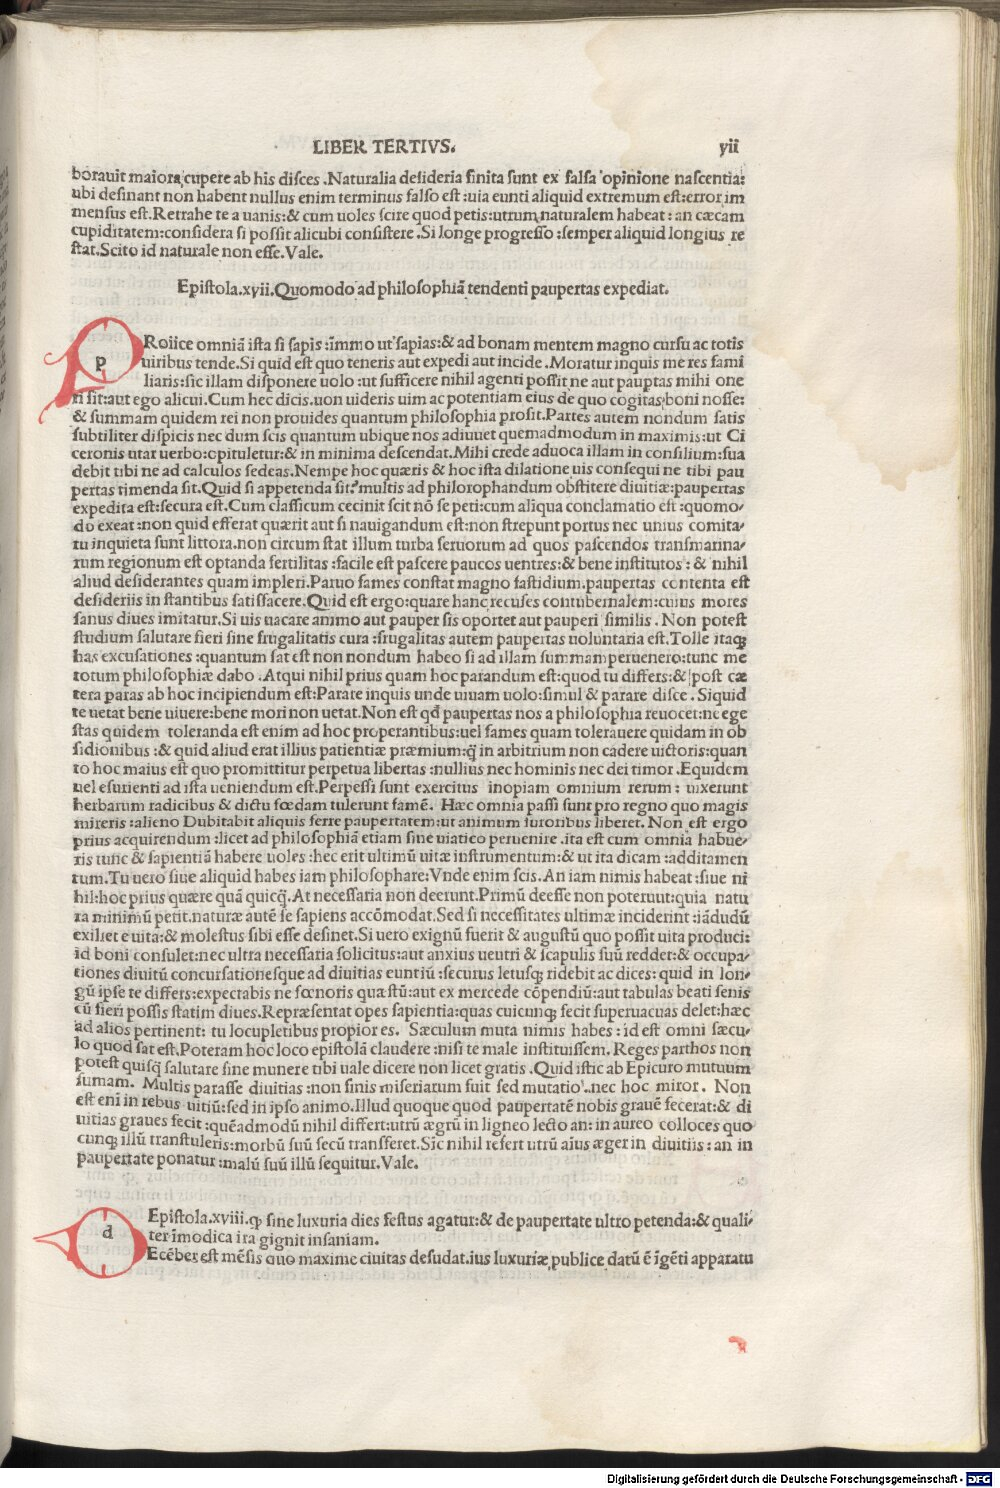 LIBER TERTIVS.
yii
borauit maiora cupere ab his disces .Naturalia desideria finita sunt ex falsa opinione nascentia:
ubi desinant non habent nullus enim terminus falso est :uia eunti aliquid extremum est:error im
mensus est.Retrahe te a uanis:& cum uoles scire quod petis:utrum naturalem habeat : an cæcam
cupiditatem:considera si possit alicubi consistere .Si longe progresso :semper aliquid longius re
stat.Scito id naturale non esse.Vale.
Epistola.xyii.Quomodo ad philosophiā tendenti paupertas expediat.
p
Roiice omniā ista si sapis :īmmo ut sapias:& ad bonam mentem magno cursu ac totis
uiribus tende.Si quid est quo teneris aut expedi aut incide .Moratur inquis me res fami
liaris:sic illam disponere uolo :ut sufficere nihil agenti possit ne aut pauptas mihi one
ri sit:aut ego alicui.Cum hec dicis.uon uideris uim ac potentiam eius de quo cogitas boni nosse:
& summam quidem rei non prouides quantum philosophia prosit.Partes autem nondum satis
subtiliter dispicis nec dum scis quantum ubique nos adiuuet quemadmodum in maximis:ut Ci
ceronis utar uerbo:opituletur:& in minima descendat.Mihi crede aduoca illam in consilium:sua
debit tibi ne ad calculos sedeas.Nempe hoc quæris & hoc ista dilatione uis consequi ne tibi pau
pertas timenda sit.Quid si appetenda sit?multis ad philorophandum obstitere diuitiæ:paupertas
expedita est:secura est.Cum classicum cecinit scit nō se peti:cum aliqua conclamatio est :quomo/
do exeat :non quid efferat quærit aut si nauigandum est:non strepunt portus nec unius comita/
tu inquieta sunt littora.non circum stat illum turba seruorum ad quos pascendos transmarina/
rum regionum est optanda fertilitas :facile est pascere paucos uentres:& bene institutos : & nihil
aliud desiderantes quam impleri.Paruo fames constat magno fastidium.paupertas contenta est
desideriis in stantibus satisfacere.Quid est ergo:quare hanc recuses contubernalem:cuius mores
sanus diues imitatur.Si uis uacare animo aut pauper sis oportet aut pauperi similis . Non potest
studium salutare fieri sine frugalitatis cura :frugalitas autem paupertas uoluntaria est.Tolle itaqꝫ
has excusationes :quantum sat est non nondum habeo si ad illam summam peruenero:tunc me
totum philosophiæ dabo .Atqui nihil prius quam hoc parandum est:quod tu differs:& post cæ
tera paras ab hoc incipiendum est:Parate inquis unde uiuam uolo:simul & parare disce . Siquid
te uetat bene uiuere:bene mori non uetat.Non est qđ paupertas nos a philosophia reuocet:ne ege
stas quidem toleranda est enim ad hoc properantibus:uel fames quam tolerauere quidam in ob
sidionibus :& quid aliud erat illius patientiæ præmium:q̄ in arbitrium non cadere uictoris:quan
to hoc maius est quo promittitur perpetua libertas :nullius nec hominis nec dei timor .Equidem
uel esurienti ad ista ueniendum est.Perpessi sunt exercitus inopiam omnium rerum : uixerunt
herbarum radicibus & dictu fœdam tulerunt famē. Hæc omnia passi sunt pro regno quo magis
mireris :alieno Dubitabit aliquis ferre paupertatem:ut animum furoribus liberet. Non est ergo
prius acquirendum :licet ad philosophiā etiam sine uiatico peruenire .ita est cum omnia habue/
ris tunc & sapientiā habere uoles :hec erit ultimū uitæ instrumentum:& ut ita dicam :additamen
tum.Tu uero siue aliquid habes iam philosophare:Vnde enim scis. An iam nimis habeat :siue ni
hil:hoc prius quære quā quicq̄.At necessaria non deerunt.Primū deesse non poteruut:quia natu
ra minimū petit.naturæ autē se sapiens accōmodat.Sed si necessitates ultimæ inciderint :iādudū
exiliet e uita:& molestus sibi esse desinet.Si uero exignū fuerit & augustū quo possit uita produci:
id boni consulet:nec ultra necessaria solicitus:aut anxius ueutri & scapulis suū reddet:& occupa/
tiones diuitū concursationesque ad diuitias euntiū :securus letusqꝫ ridebit ac dices: quid in lon/
gū ipse te differs:expectabis ne fœnoris quæstū:aut ex mercede cōpendiū:aut tabulas beati senis
cū fieri possis statim diues.Repræsentat opes sapientia:quas cuicunqꝫ fecit superuacuas delet:hæc
ad alios pertinent: tu locupletibus propior es. Sæculum muta nimis habes : id est omni sæcu/
lo quod sat est.Poteram hoc loco epistolā claudere :nisi te male instituissem. Reges parthos non
potest quisq̄ salutare sine munere tibi uale dicere non licet gratis .Quid istic ab Epicuro mutuum
sumam. Multis parasse diuitias :non finis miseriarum fuit sed mutatio .nec hoc miror. Non
est enī in rebus uitiū:sed in ipso animo.Illud quoque quod paupertatē nobis grauē fecerat:& di
uitias graues fecit :quēadmodū nihil differt:utrū ægrū in ligneo lecto an: in aureo colloces quo
cunqꝫ illū transtuleris:morbū suū secū transferet.Sic nihil refert utrū aīus æger in diuitiis : an in
paupertate ponatur :malū suū illū sequitur.Vale.
Epistola.xviii.qꝫ sine luxuria dies festus agatur:& de paupertate ultro petenda:& quali/
ter īmodica ira gignit insaniam.
d
Ecēber est mēsis quo maxime ciuitas desudat.ius luxuriæ publice datū ē īgēti apparatu
Digitalisierung gefördert durch die Deutsche Forschungsgemeinschaft - DFG